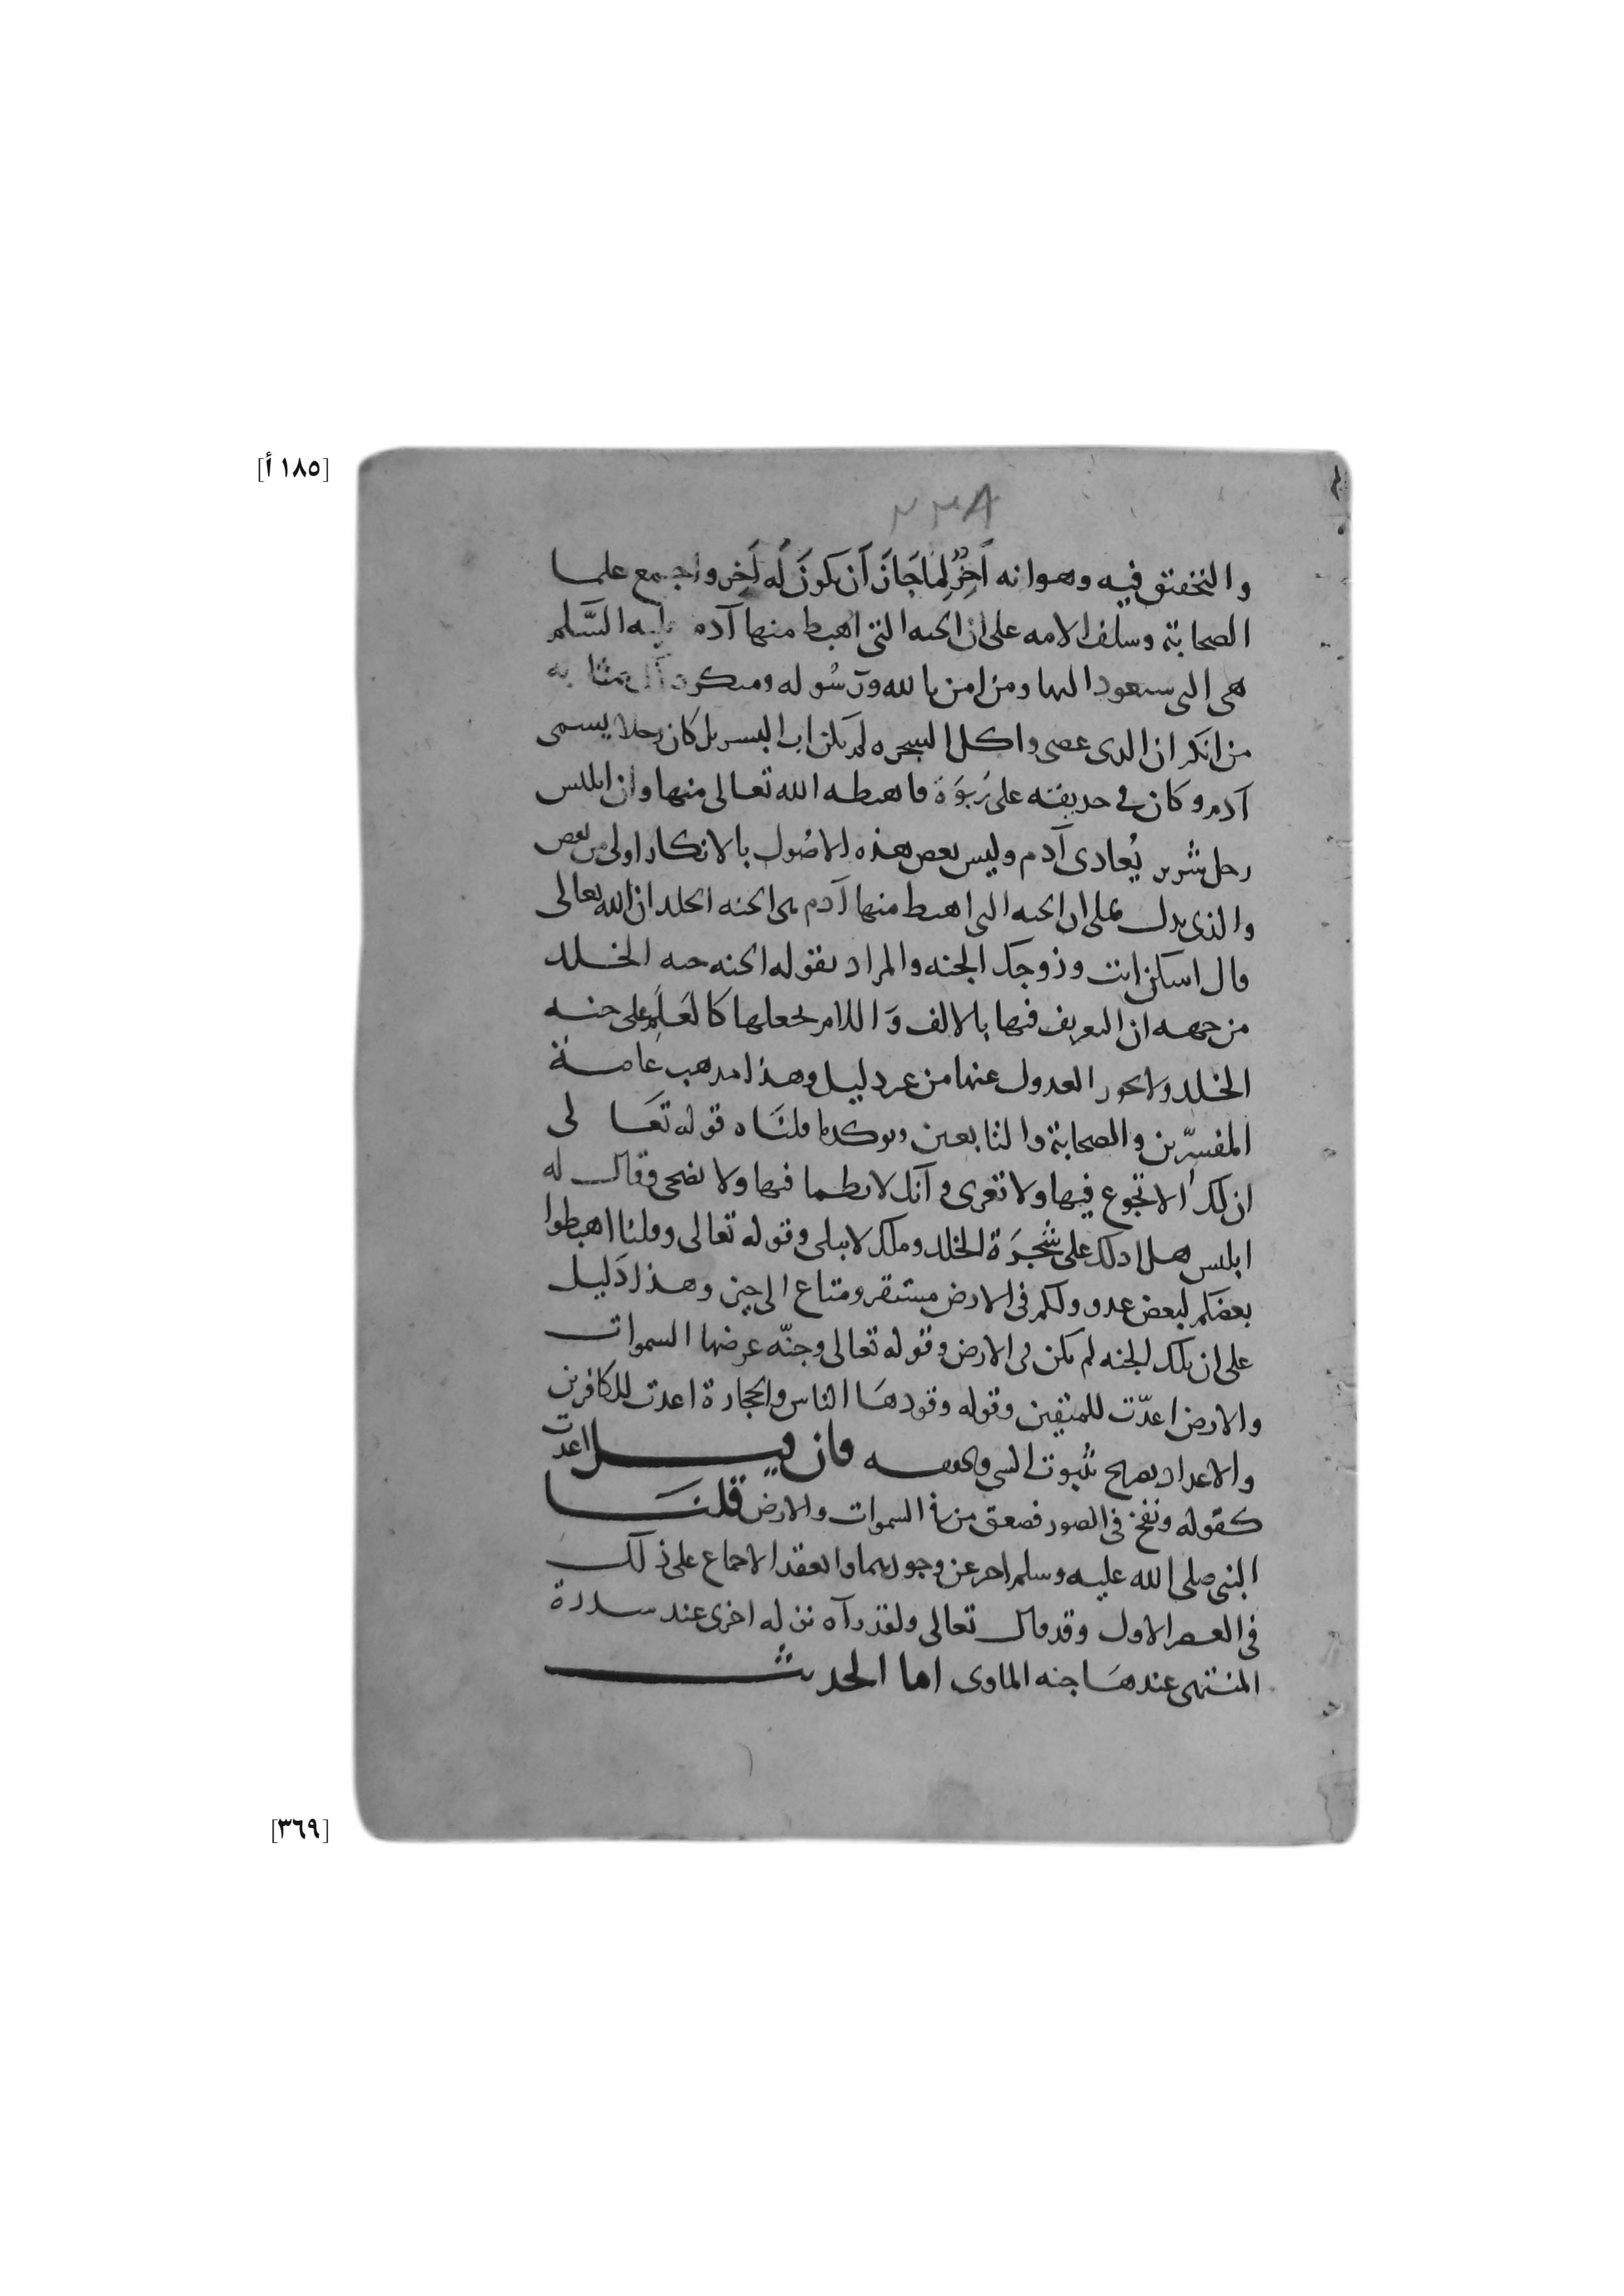 [١٨٥ أ]
٢٣٨
والتحقيق فيه وهو انه آخِرٌ لِمَا جَازَ أن يكونَ لَه آخِر واجمع علما
الصحابة وسلف الامه على ان الجنه التى اهبط منها آدم عليه السَّلم
هى التى سيعود اليها ومن امن بالله ورسُوله ومنكر بمثابه
من انكر ان الذى عصى واكل الشجره لم يكن ابا البشر بل كان رجلا يسمى
آدم وكان فى حديقته على رَبوَة فاهبطه الله تعالى منها وان ابليس
رجل شرير يُعادى آدم وليس بعض هذه الاصُول بالانكار اولى من بعض
والذى يدل على ان الجنه التى اهبط منها آدم هى الجنه الخلد ان الله تعالى
قال اسكن انت وزوجك الجنه والمراد بقوله الجنه جنه الخلد
من جهه ان التعريف فيها بالالف وَاللام يجعلها كالعَلَم على جنه
الخلد ولا يجوز العدول عنها من غير دليل وهذا مذهب عامة
المفسّرين والصحابة والتابعين ويوكد ما قلنَاه قوله تعَالى
ان لك الا تجوع فيها ولا تعرى وآنك لا تظما فيها ولا تضحى وقال له
ابليس هل ادلك على شجَرَة الخلد وملك لا يبلى وقوله تعالى وقلنا اهبطوا
بعضكم لبعض عدو ولكم فى الارض مستقر ومتاع الى حين وهذا دَليل
على ان تلك الجنه لم تكن فى الارض وقوله تعالى وجنّه عرضها السموات
والارض اعدّت للمتقين وقوله وقودهَا الناس والحجارة اعدت للكافرين
والاعداد يصرح بثبوت الشى وتحققه فان قيل اعدت
كقوله ونفخ فى الصور فصعق من فى السموات والارض قلنَا
النبى صلى الله عليه وسلم اخبر عن وجودهما وانعقد الاجماع على ذلك
فى العصر الاول وقد قال تعالى ولقد رآه نزله اخرى عند سدرة
المنتهى عندهَا جنه الماوى اما الحديث
[٣٦٩]